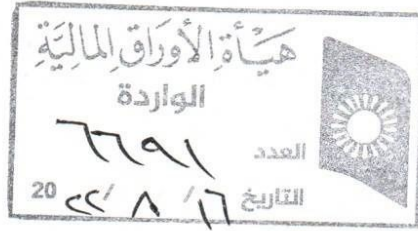 هيأة الأوراق المالية
الواردة
العدد ٦٦٩١
التاريخ ١٦/ ٨ / ٢٢ 20